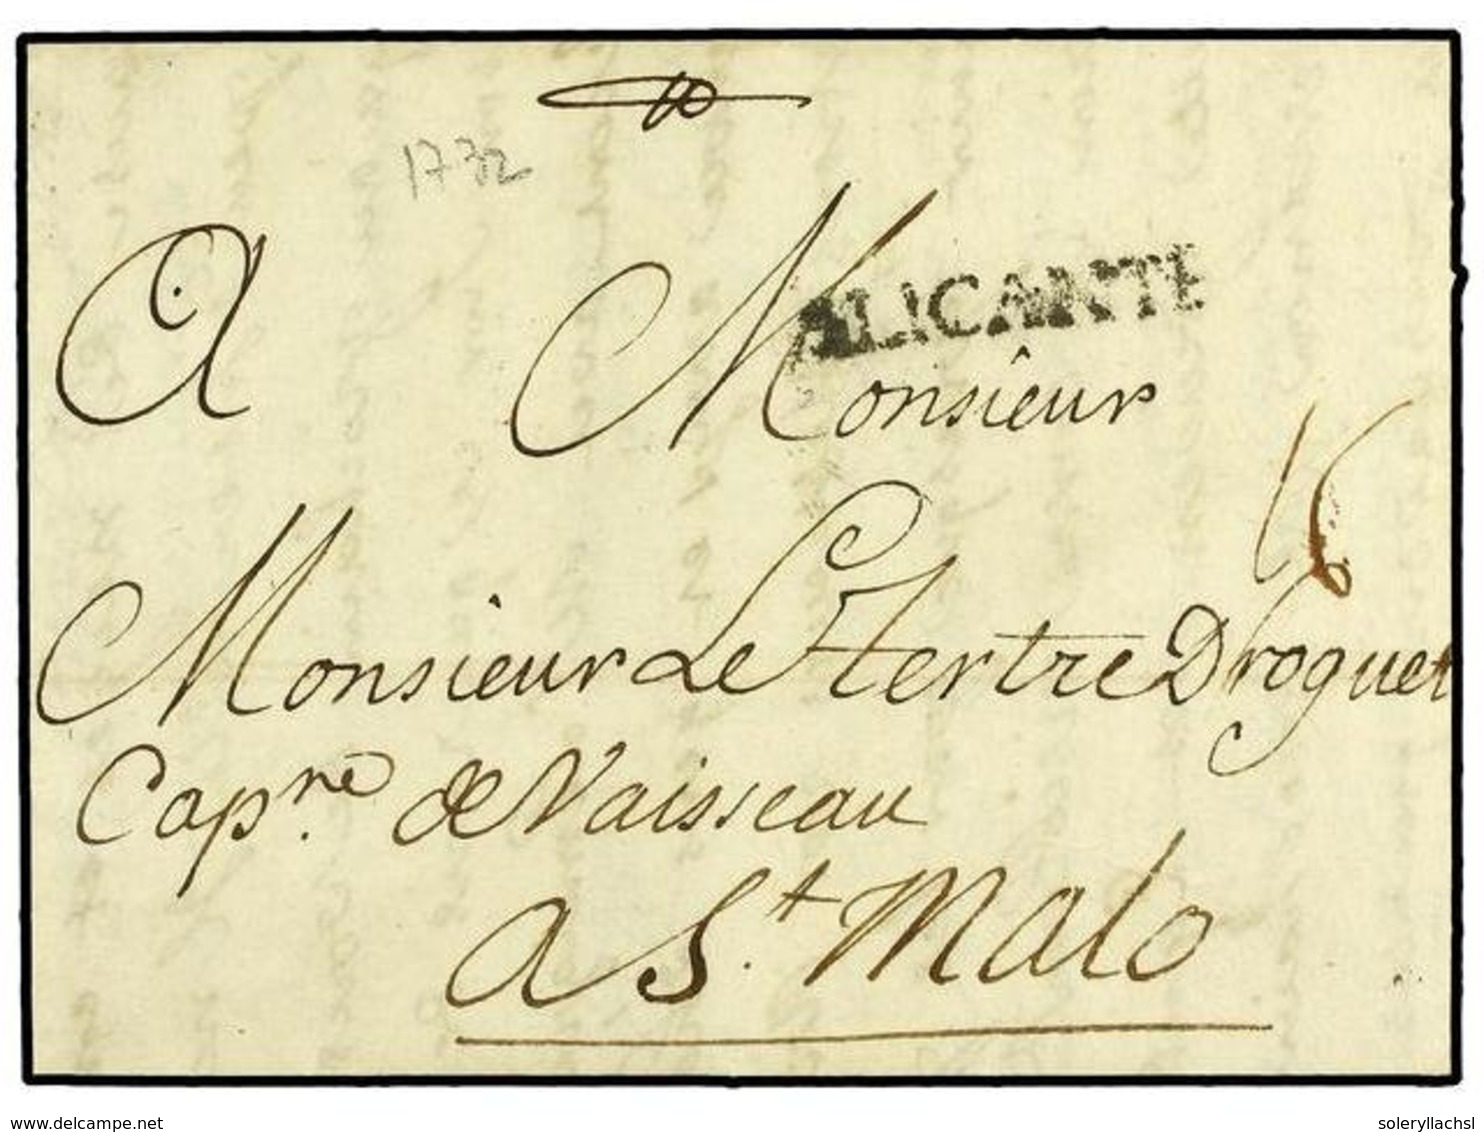 1732
A Monsieur
ALICANTE
16
Monsieur Le Tertre Droguet
Capne. de Vaisseau
a St. Malo
www.delcampe.net
soleryllachsl